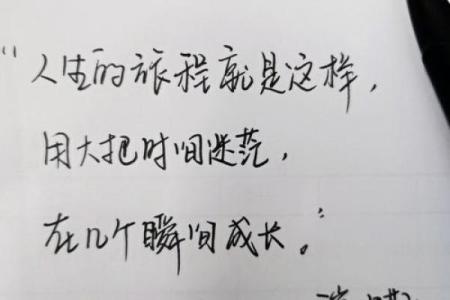 “人生的旅程就是这样，
用大把时间迷茫，
在几个瞬间成长。”